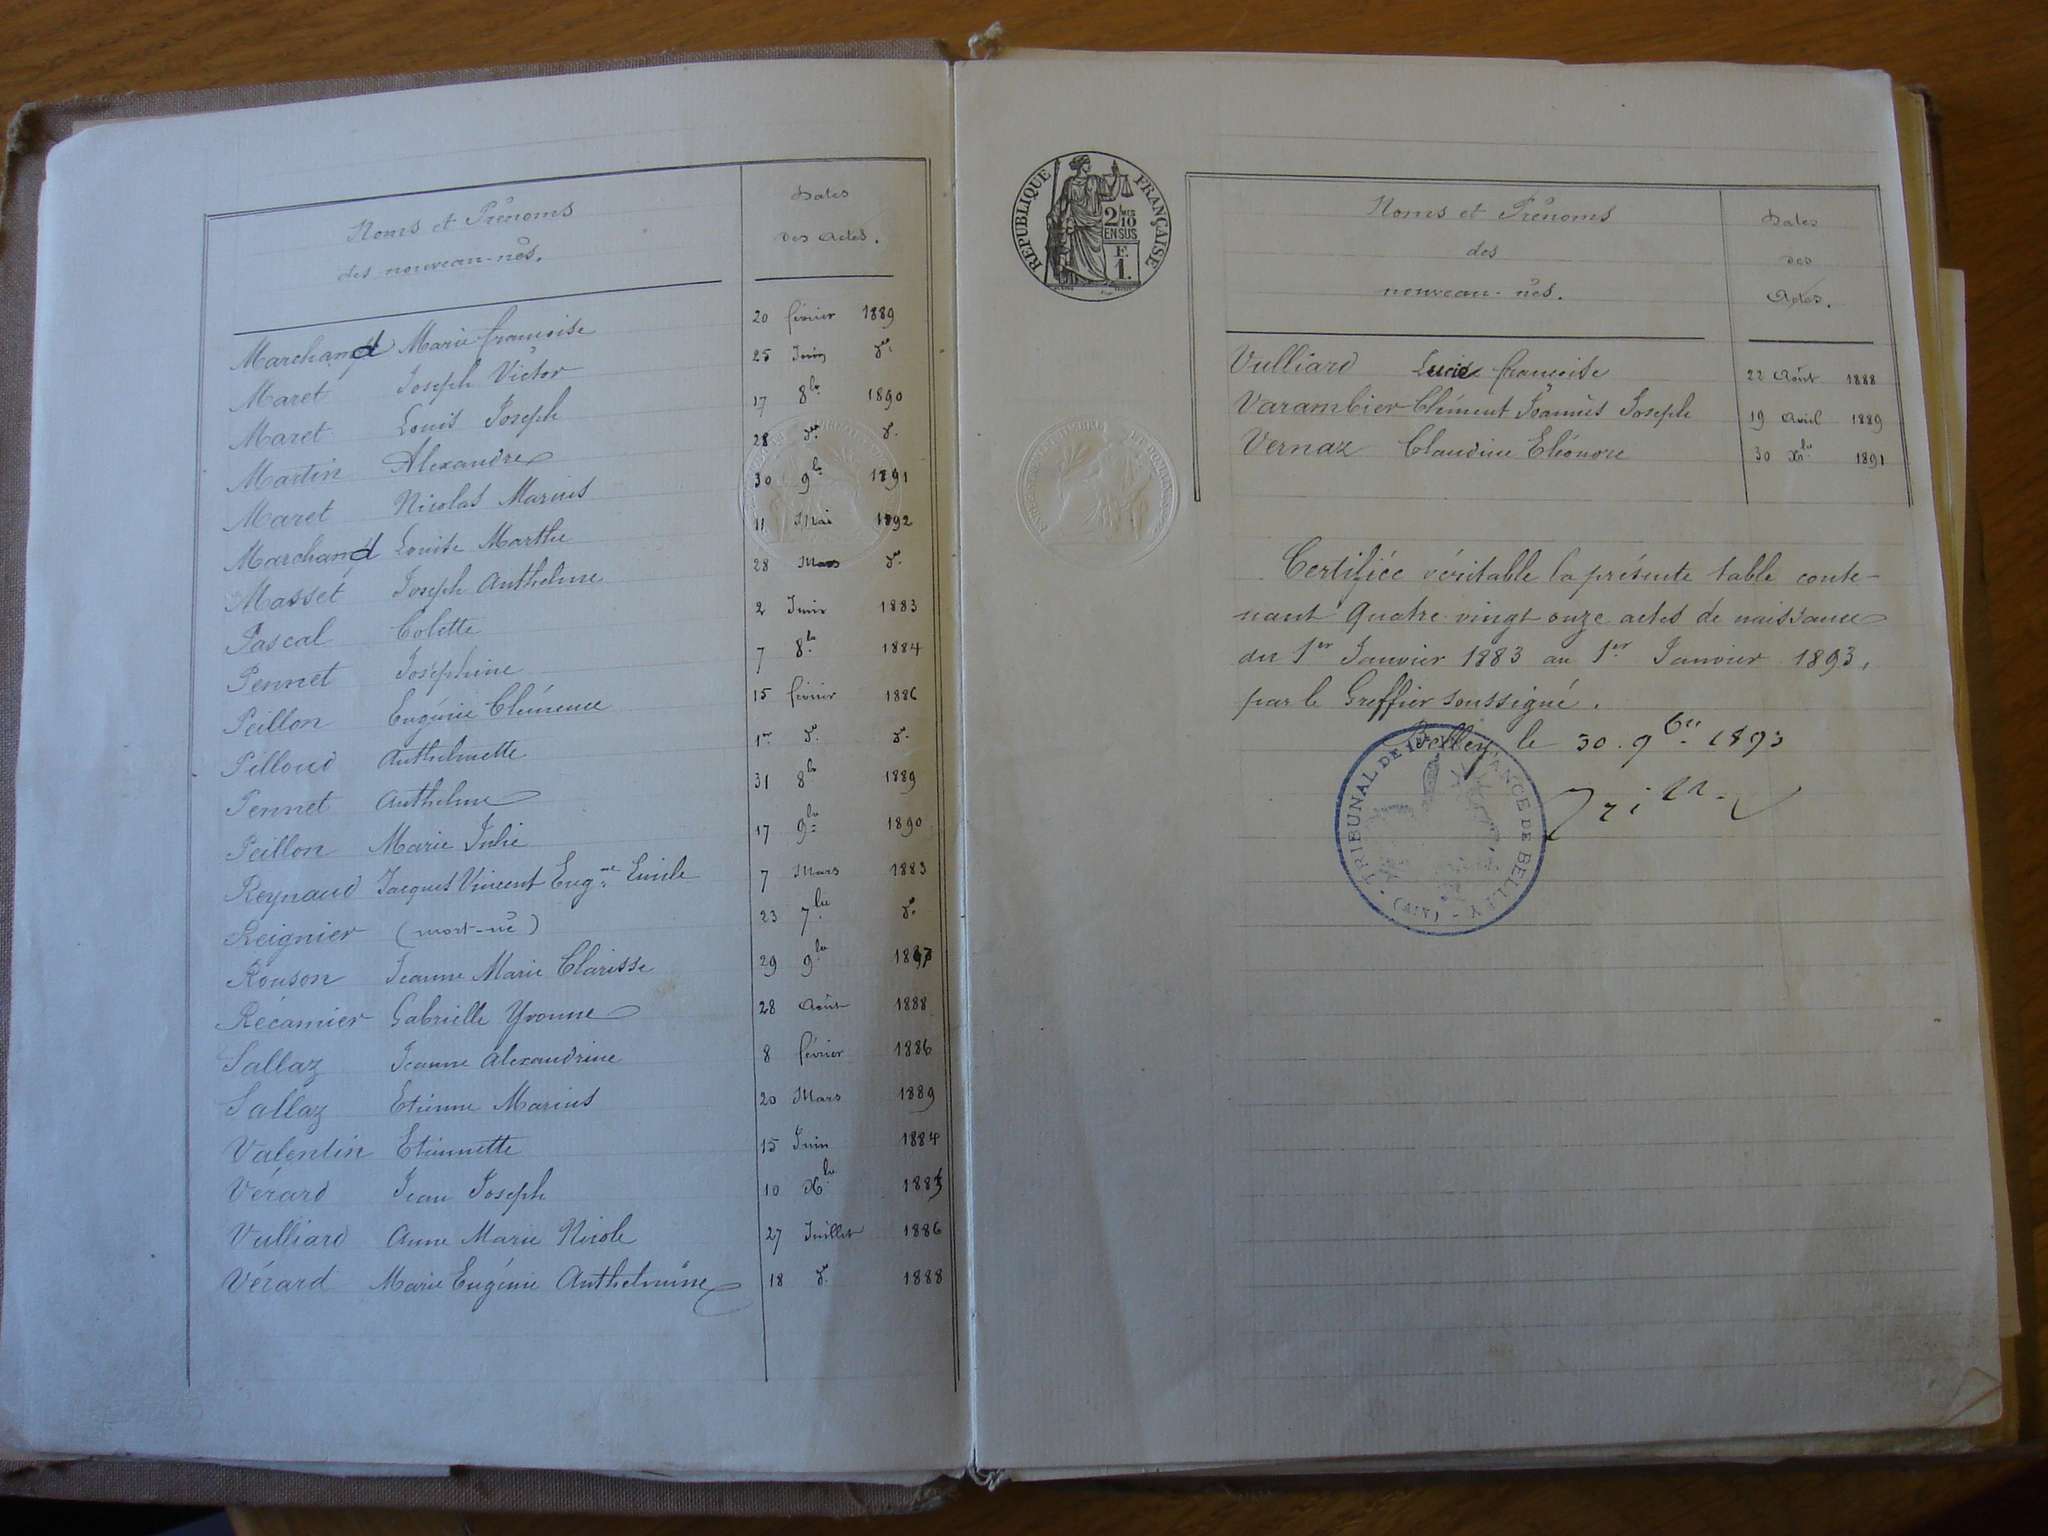 Noms et Prénoms
des nouveau-nés.
Dates
des Actes.
Marchand Marie françoise 20 février 1889
Maret Joseph Victor 25 Juin do.
Maret Louis Joseph 17 8bre 1890
Martin Alexandre 28 do. do.
Maret Nicolas Marius 30 9bre 1891
Marchand Louise Marthe 11 Mai 1892
Masset Joseph Anthelme 28 Mars do.
Pascal Colette 2 Juin 1883
Pennet Joséphine 7 8bre 1884
Peillon Eugénie Clémence 15 février 1886
Pilloud Anthelmette 1er do. do.
Pennet Anthelme 31 8bre 1889
Peillon Marie Julie 17 9bre 1890
Reynaud Jacques Vincent Eugne Emile 7 Mars 1883
Reignier (mort-né) 23 7bre do.
Rouson Jeanne Marie Clarisse 29 9bre
Récamier Gabrielle Yvonne 28 Août 1888
Sallaz Jeanne Alexandrine 8 février 1886
Sallaz Etienne Marius 20 Mars 1889
Valentin Etiennette 15 Juin 1884
Vérard Jean Joseph 10 Xbre
Vulliard Anne Marie Nicole 27 Juillet 1886
Vérard Marie Eugénie Anthelmine 18 do. 1888
RÉPUBLIQUE FRANÇAISE
2/10 MES
EN SUS
F.
1.
Noms et Prénoms
des
nouveau-nés.
Dates
des
Actes.
Vulliard Lucie françoise 22 Août 1888
Varambier Clément Joannès Joseph 19 Avril 1889
Vernaz Claudine Eléonore 30 Xbre 1891
Certifiée véritable la présente table conte-
nant Quatre vingt onze actes de naissance
du 1er Janvier 1883 au 1er Janvier 1893,
par le Greffier soussigné.
Belley, le 30. 9bre 1893
TRIBUNAL DE 1ERE INSTANCE DE BELLEY
(AIN)